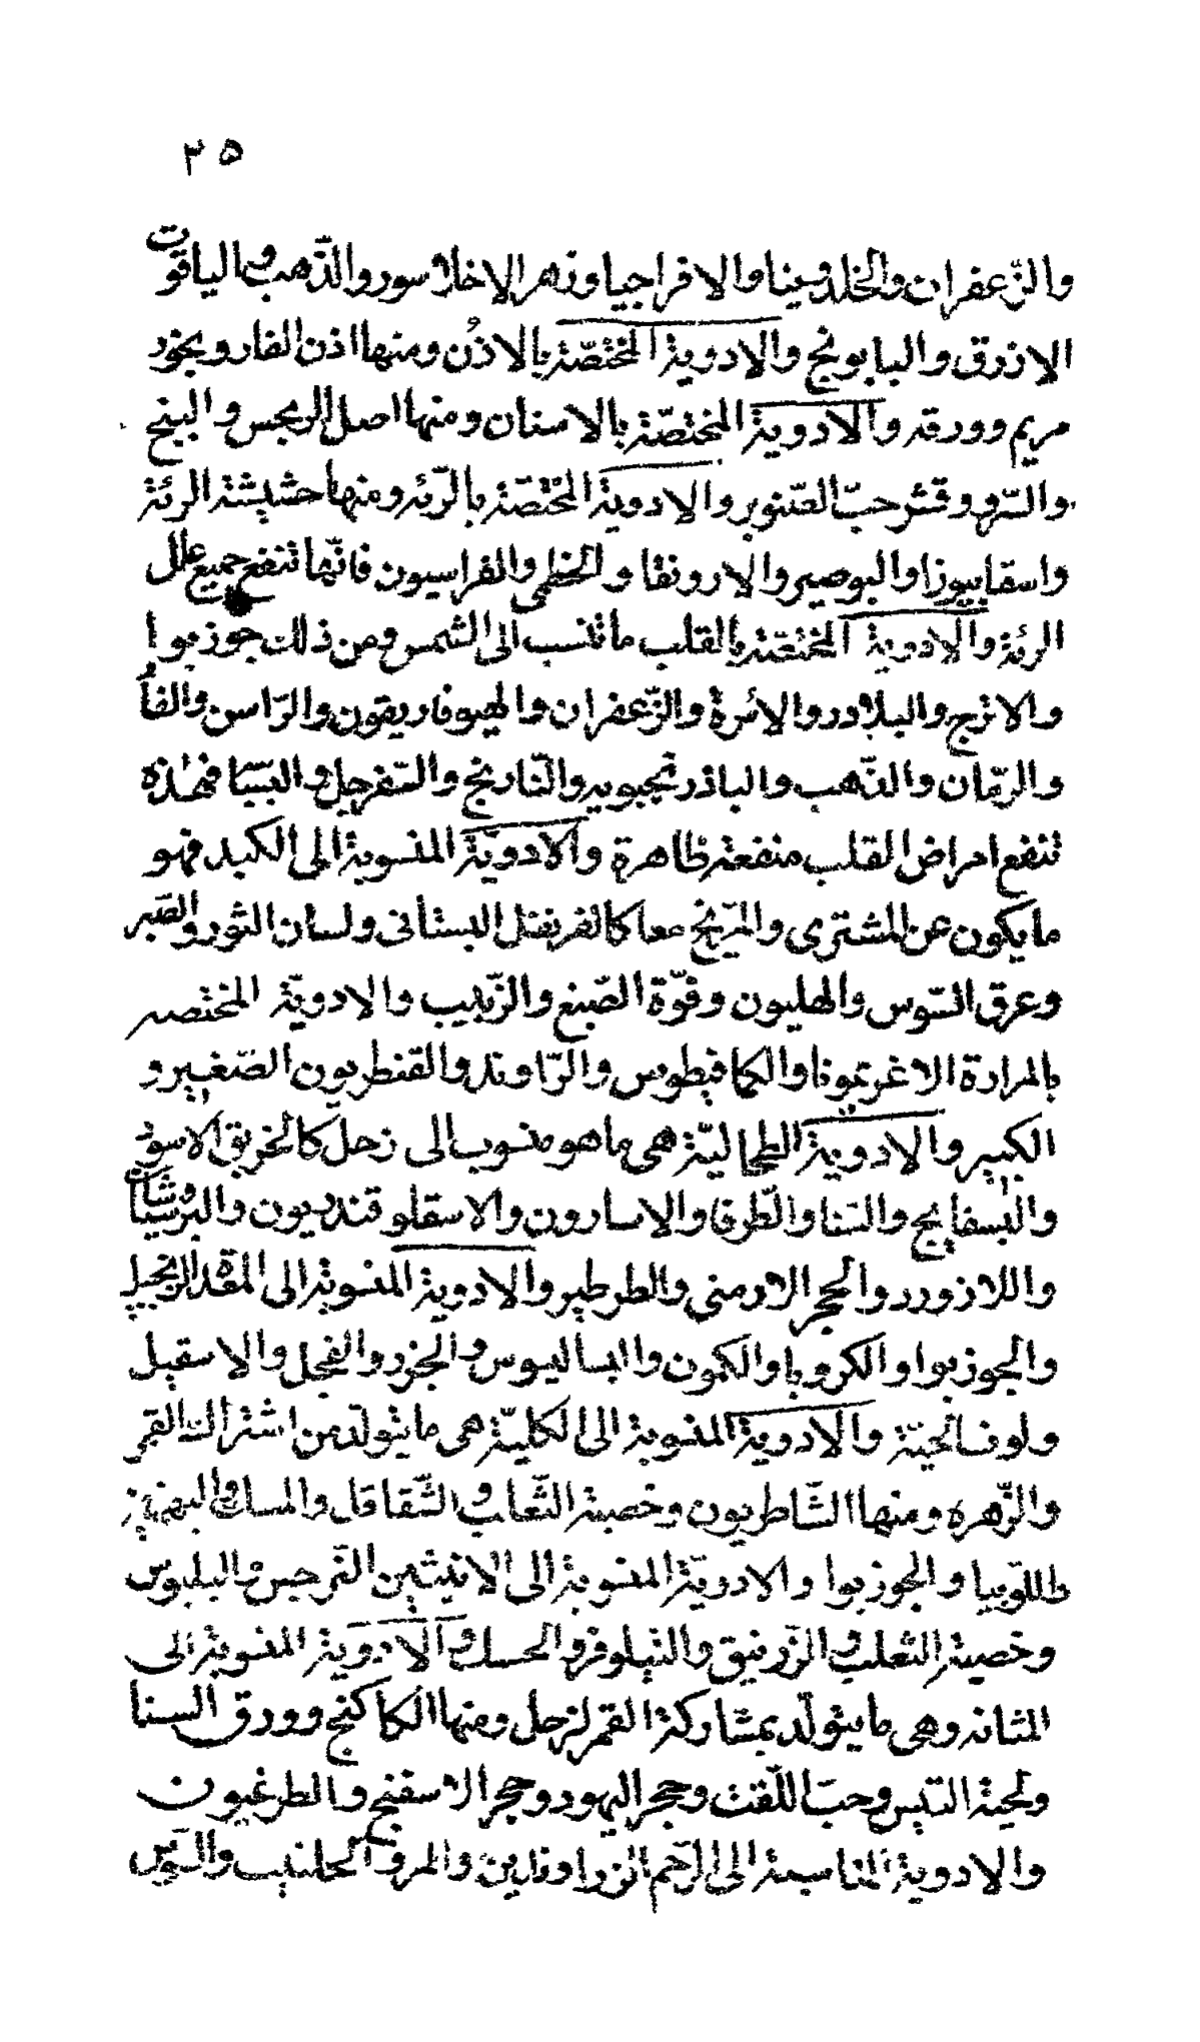 ٢٥
والزّعفران والخلدوينا والافراجيا وزهر الاخلاسور والذّهب والياقوت
الازرق والبابونج والادوية المختصّة بالاذُن ومنها اذن الفار وبخور
مريم وورقه والادوية المختصّة بالاسنان ومنها اصل النرجس والبنج
والسّرو وقشر حبّ الصّنوبر والادوية المختصّة بالرّئه ومنها حشيشة الرئة
واسقابيوزا والبوصير والارونقا والخطمى والفراسيون فانّها تنفع جميع علل
الرئة والادوية المختصّة بالقلب ما تنسب الى الشمس ومن ذلك جوزبوا
والاترج والبلادر والإبرة والزّعفران والهيوفاريقون والرّاسن والفأ
والرمّان والذّهب والباذرنجبويه والنّارنج والسّفرجل والبسّبا فهٰذه
تنفع امراض القلب منفعة ظاهرة والادويّة المنسوبة الى الكبد فهو
ما يكون عن المشترى والمرّيخ معا كالقرنفل البستانى ولسان الثور والصّبر
وعرق السّوس والهليون وفوّة الصّبغ والزّبيب والادويّة المختصه
بالمرارة الاغريمونا والكمافيطوس والرّاوند والقنطريون الصّغير و
الكبير والادوية الطحاليّة هى ما هو منسوب الى زحل كالخربق الاسود
والبسفايج والسّنا والطّرفا والاسارون والاسقلوقندريون والبرشياشان
واللازورد والحجر الارمنى والطرطير والادوية المنسوبة الى المعدة الزنجبيل
والجوزبوا والكرويا والكمون والبساليوس والجزر والفجل والاسقيل
ولوف الحيّة والادوية المنسوبة الى الكليّة هى ما يتولّد من اشتراك القمر
والزّهره ومنها الشّاطريون وخصية الثّعلب والشّقاقل والمسك والبهمنين
واللّوبيا والجوزبوا والادويّة المنسوبة الى الانثيين النّرجس والبلبوس
وخصية الثعلب والزّرنيق والنيلوفر والحسك والادوية المنسوبة الى
المثانه وهى ما يتولّد بمشاركة القمر لزحل ومنها الكاكنج وورق السنا
ولحية التيس وحبّ اللّفت وحجر اليهود وحجر الاسفنج والطرغيون
والادوية المناسبة الى الرّحم الزراوندين والمرو الحلتيب والسّوس